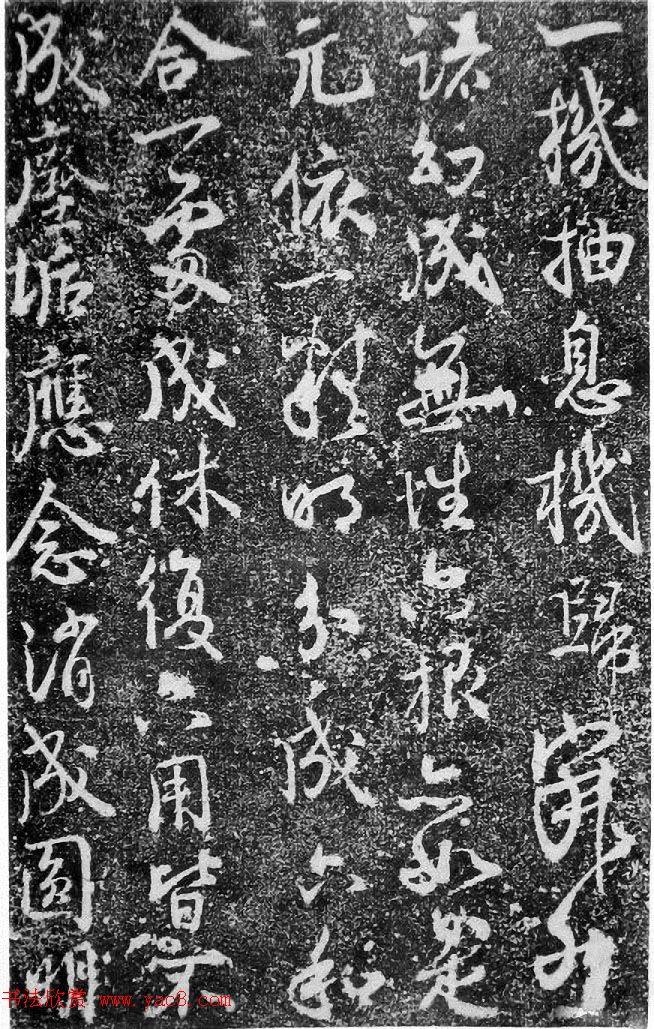 一機抽息機歸寂然
諸幻成無性六根亦如是
元依一精明分成六和
合一處成休復六用皆不
成塵垢應念消成圓明
书法欣赏 www.yac8.com